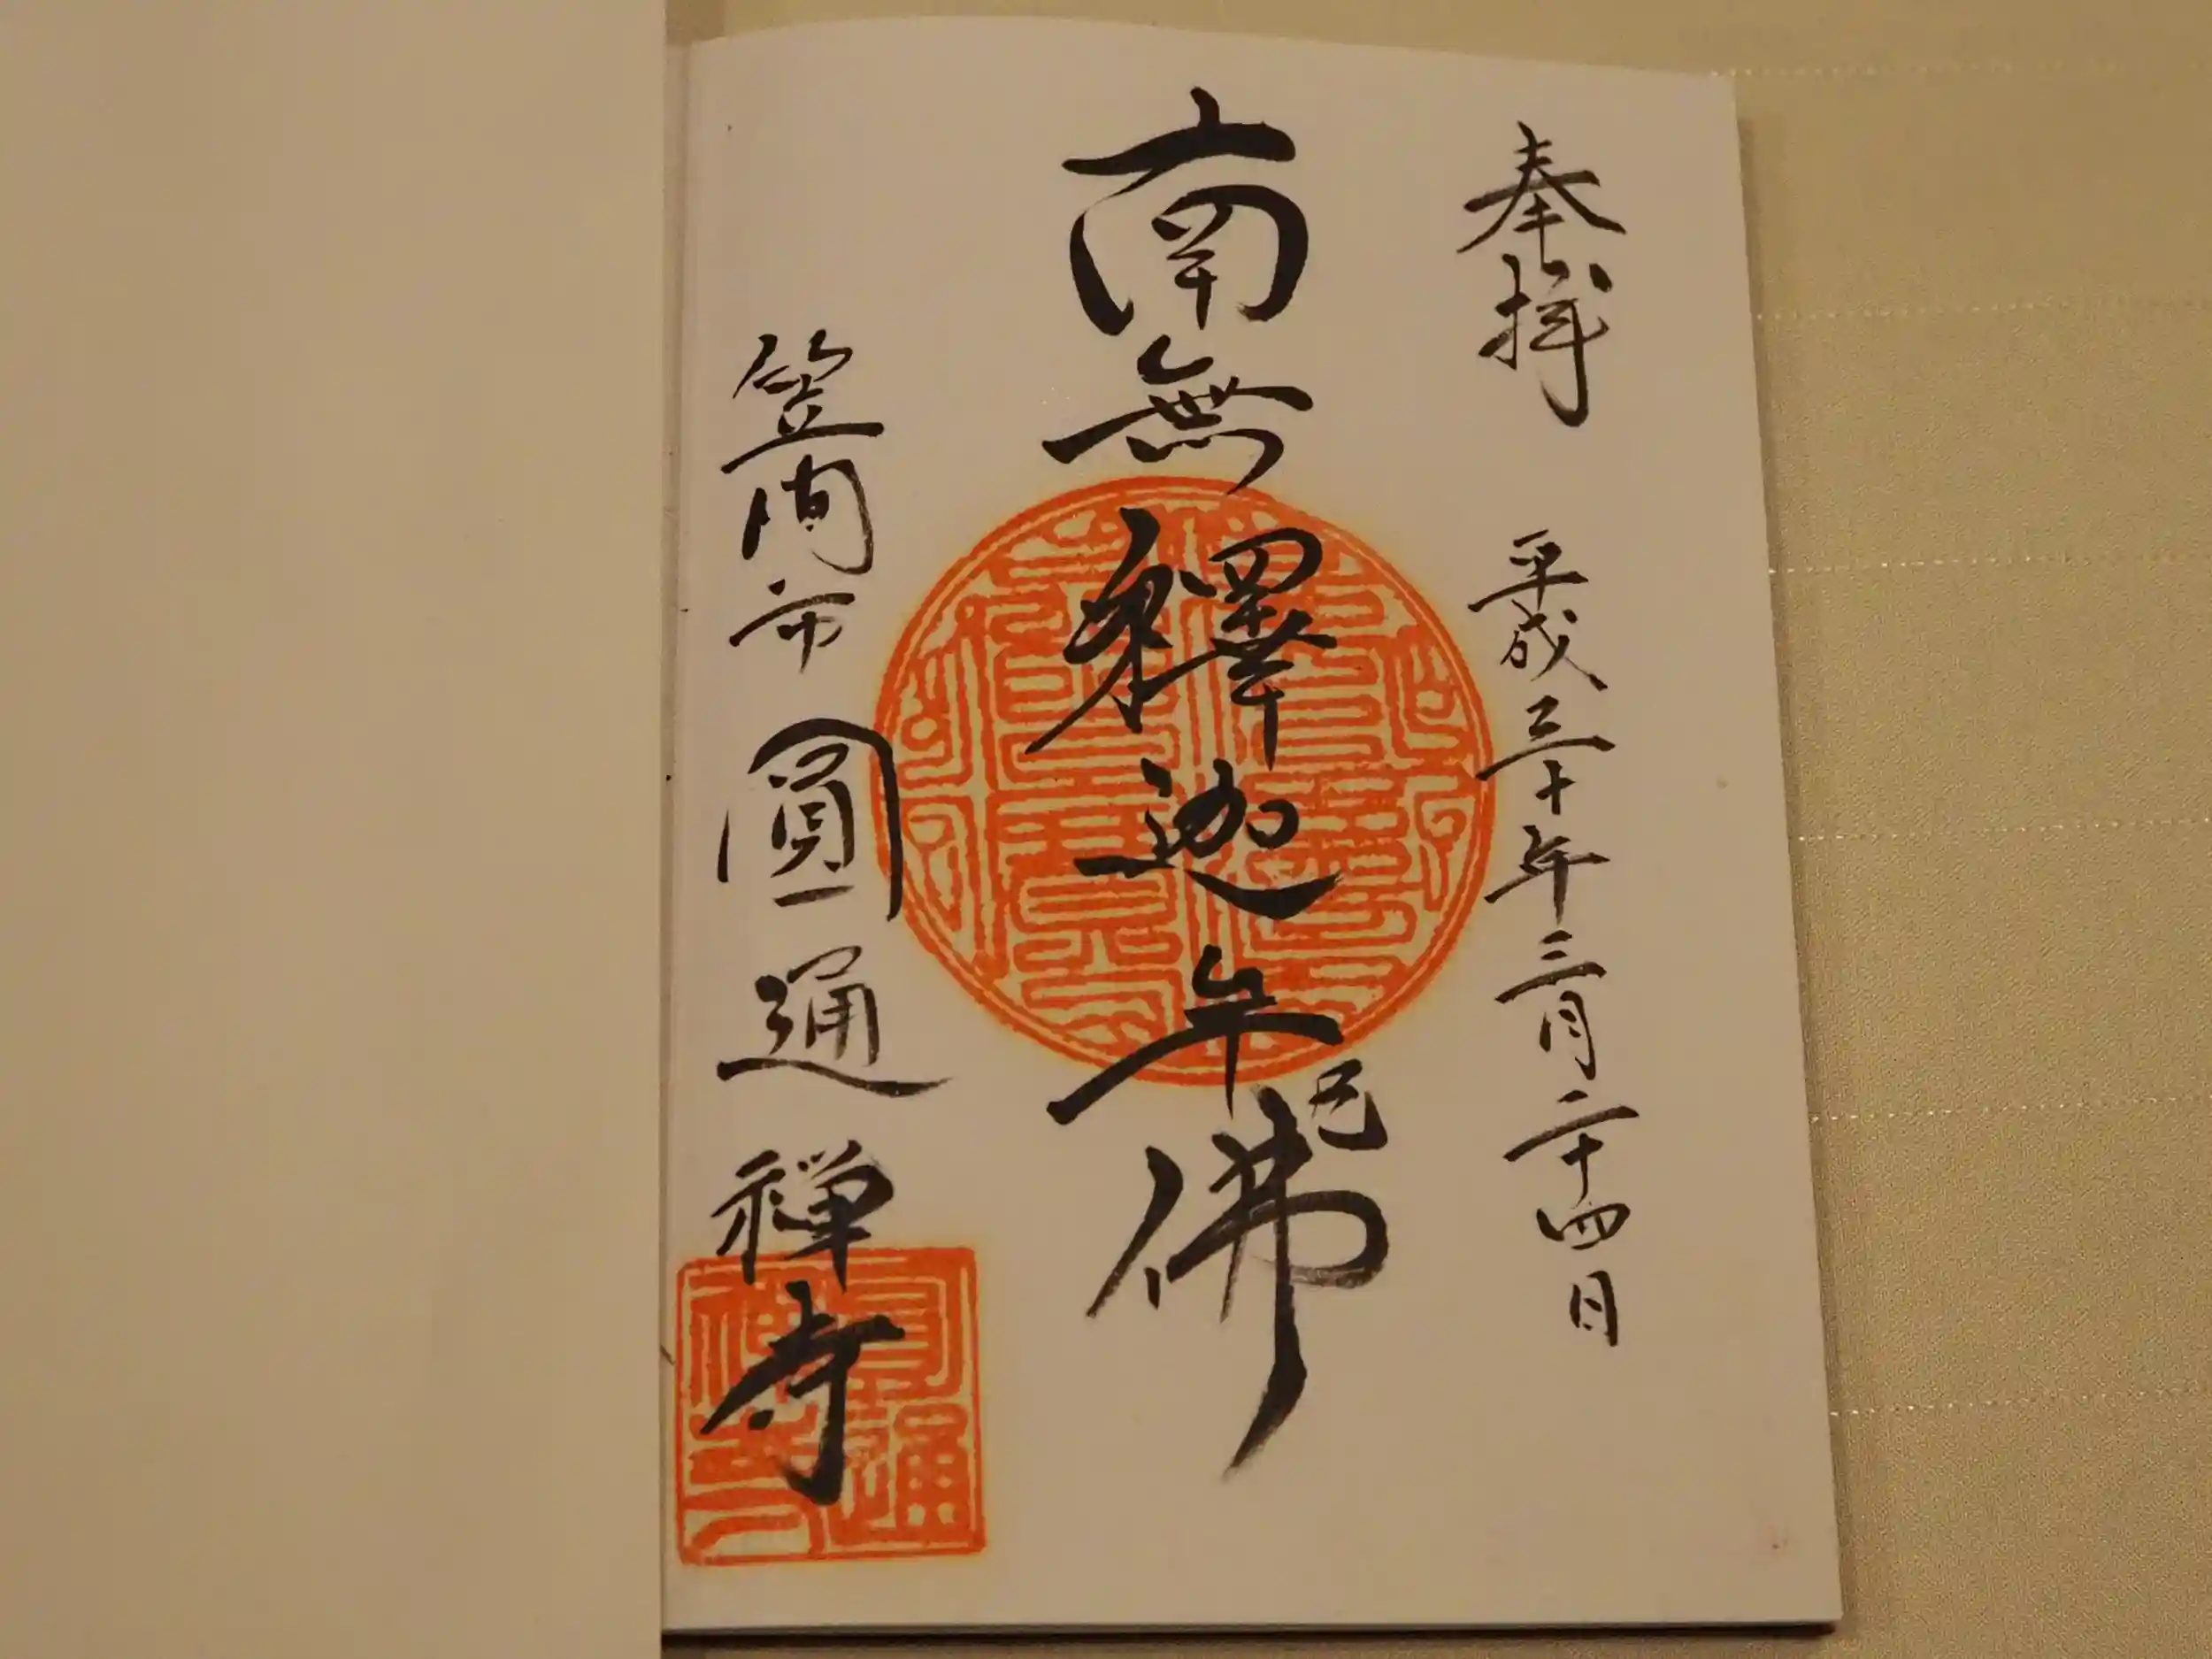 奉拝 平成三十年三月二十四日
南無釋迦牟尼佛
笠間市 圓通禅寺